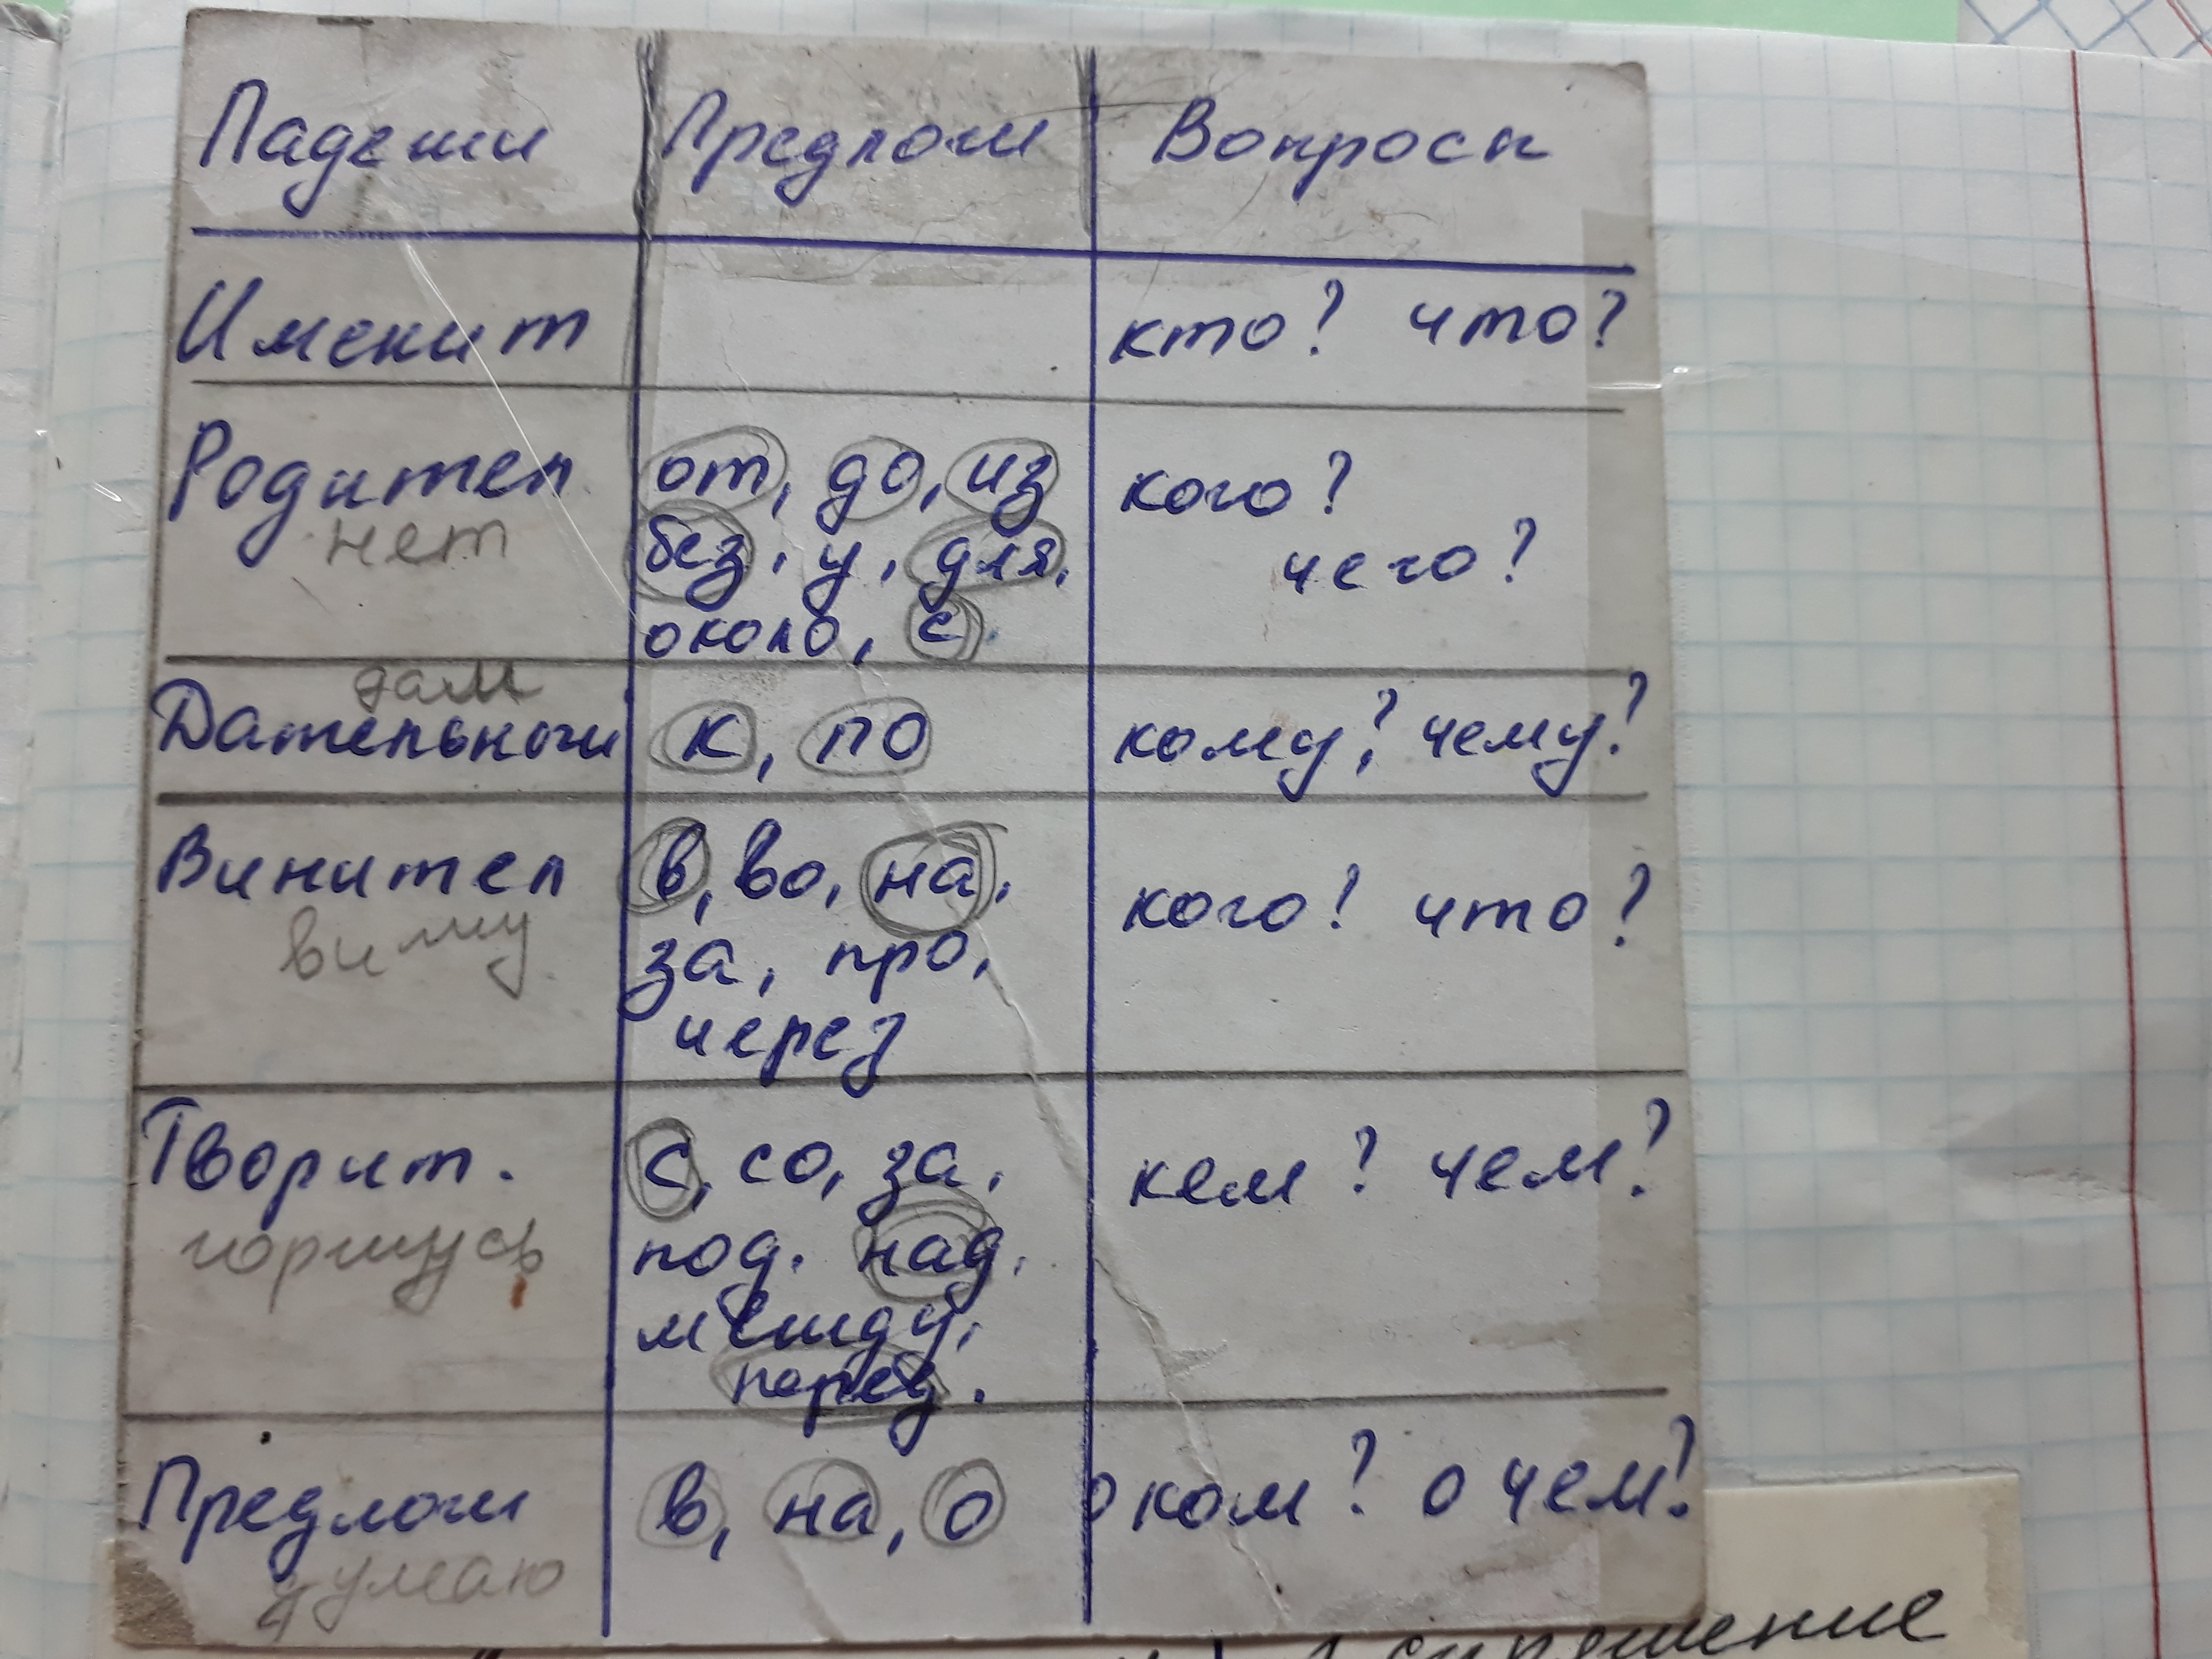 Падежи Предлож Вопросы
Именит кто? что?
Родител от, до, из кого?
нет без, у, для, чего?
около, с.
дам
Дательный к, по кому? чему?
Винител в, во, на, кого? что?
вижу за, про,
через
Творит. с, со, за, кем? чем?
горжусь под, над,
между,
перед.
Предлож в, на, о о ком? о чем?
думаю